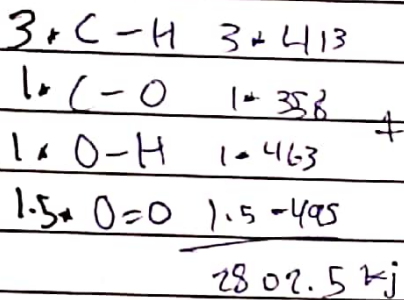 3 * C - H 3 * 413
1 * C - O 1 * 358 +
1 * O - H 1 * 463
1.5 * O = O 1.5 * 495
2802.5 kj